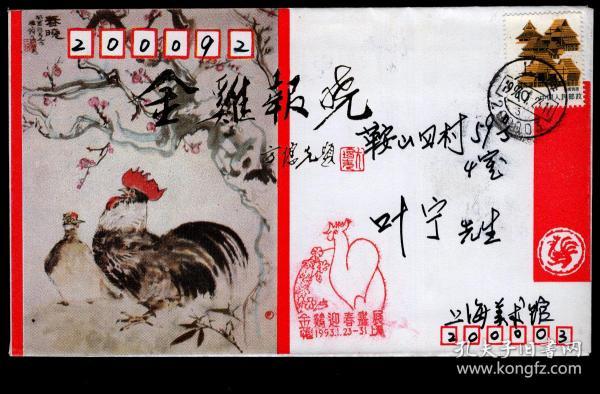 春晓
200092
金雞報曉
鞍山四村59号
4室
叶宁先生
金鷄迎春畫展
1993.1.23-31上海
上海美术馆
200003
孔夫子旧书网